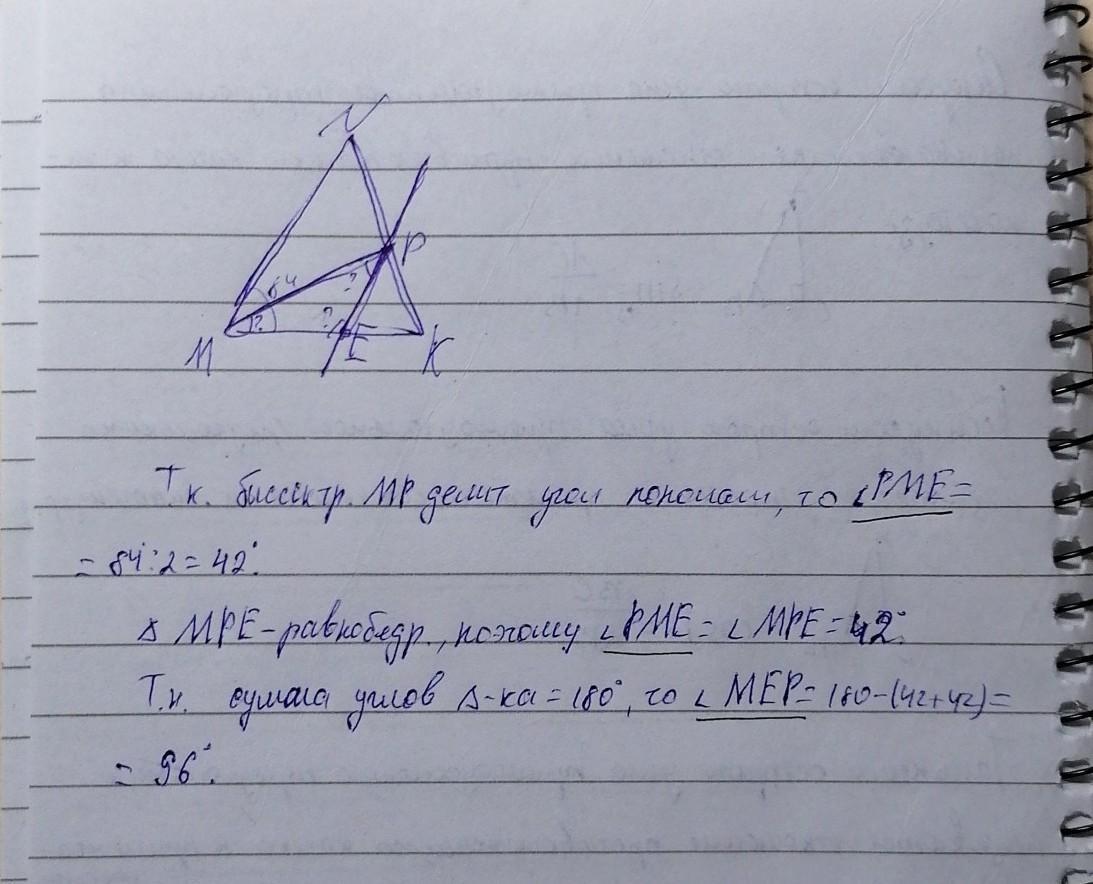 N
P
84
?
?
?
M
E
K
Т к. биссектр. MP делит угол пополам, то ∠PME=
= 84:2 = 42°.
△ MPE - равнобедр., поэтому ∠PME = ∠ MPE = 42°.
Т.к. сумма углов △-ка = 180°, то ∠ MEP = 180-(42+42)=
= 96°.